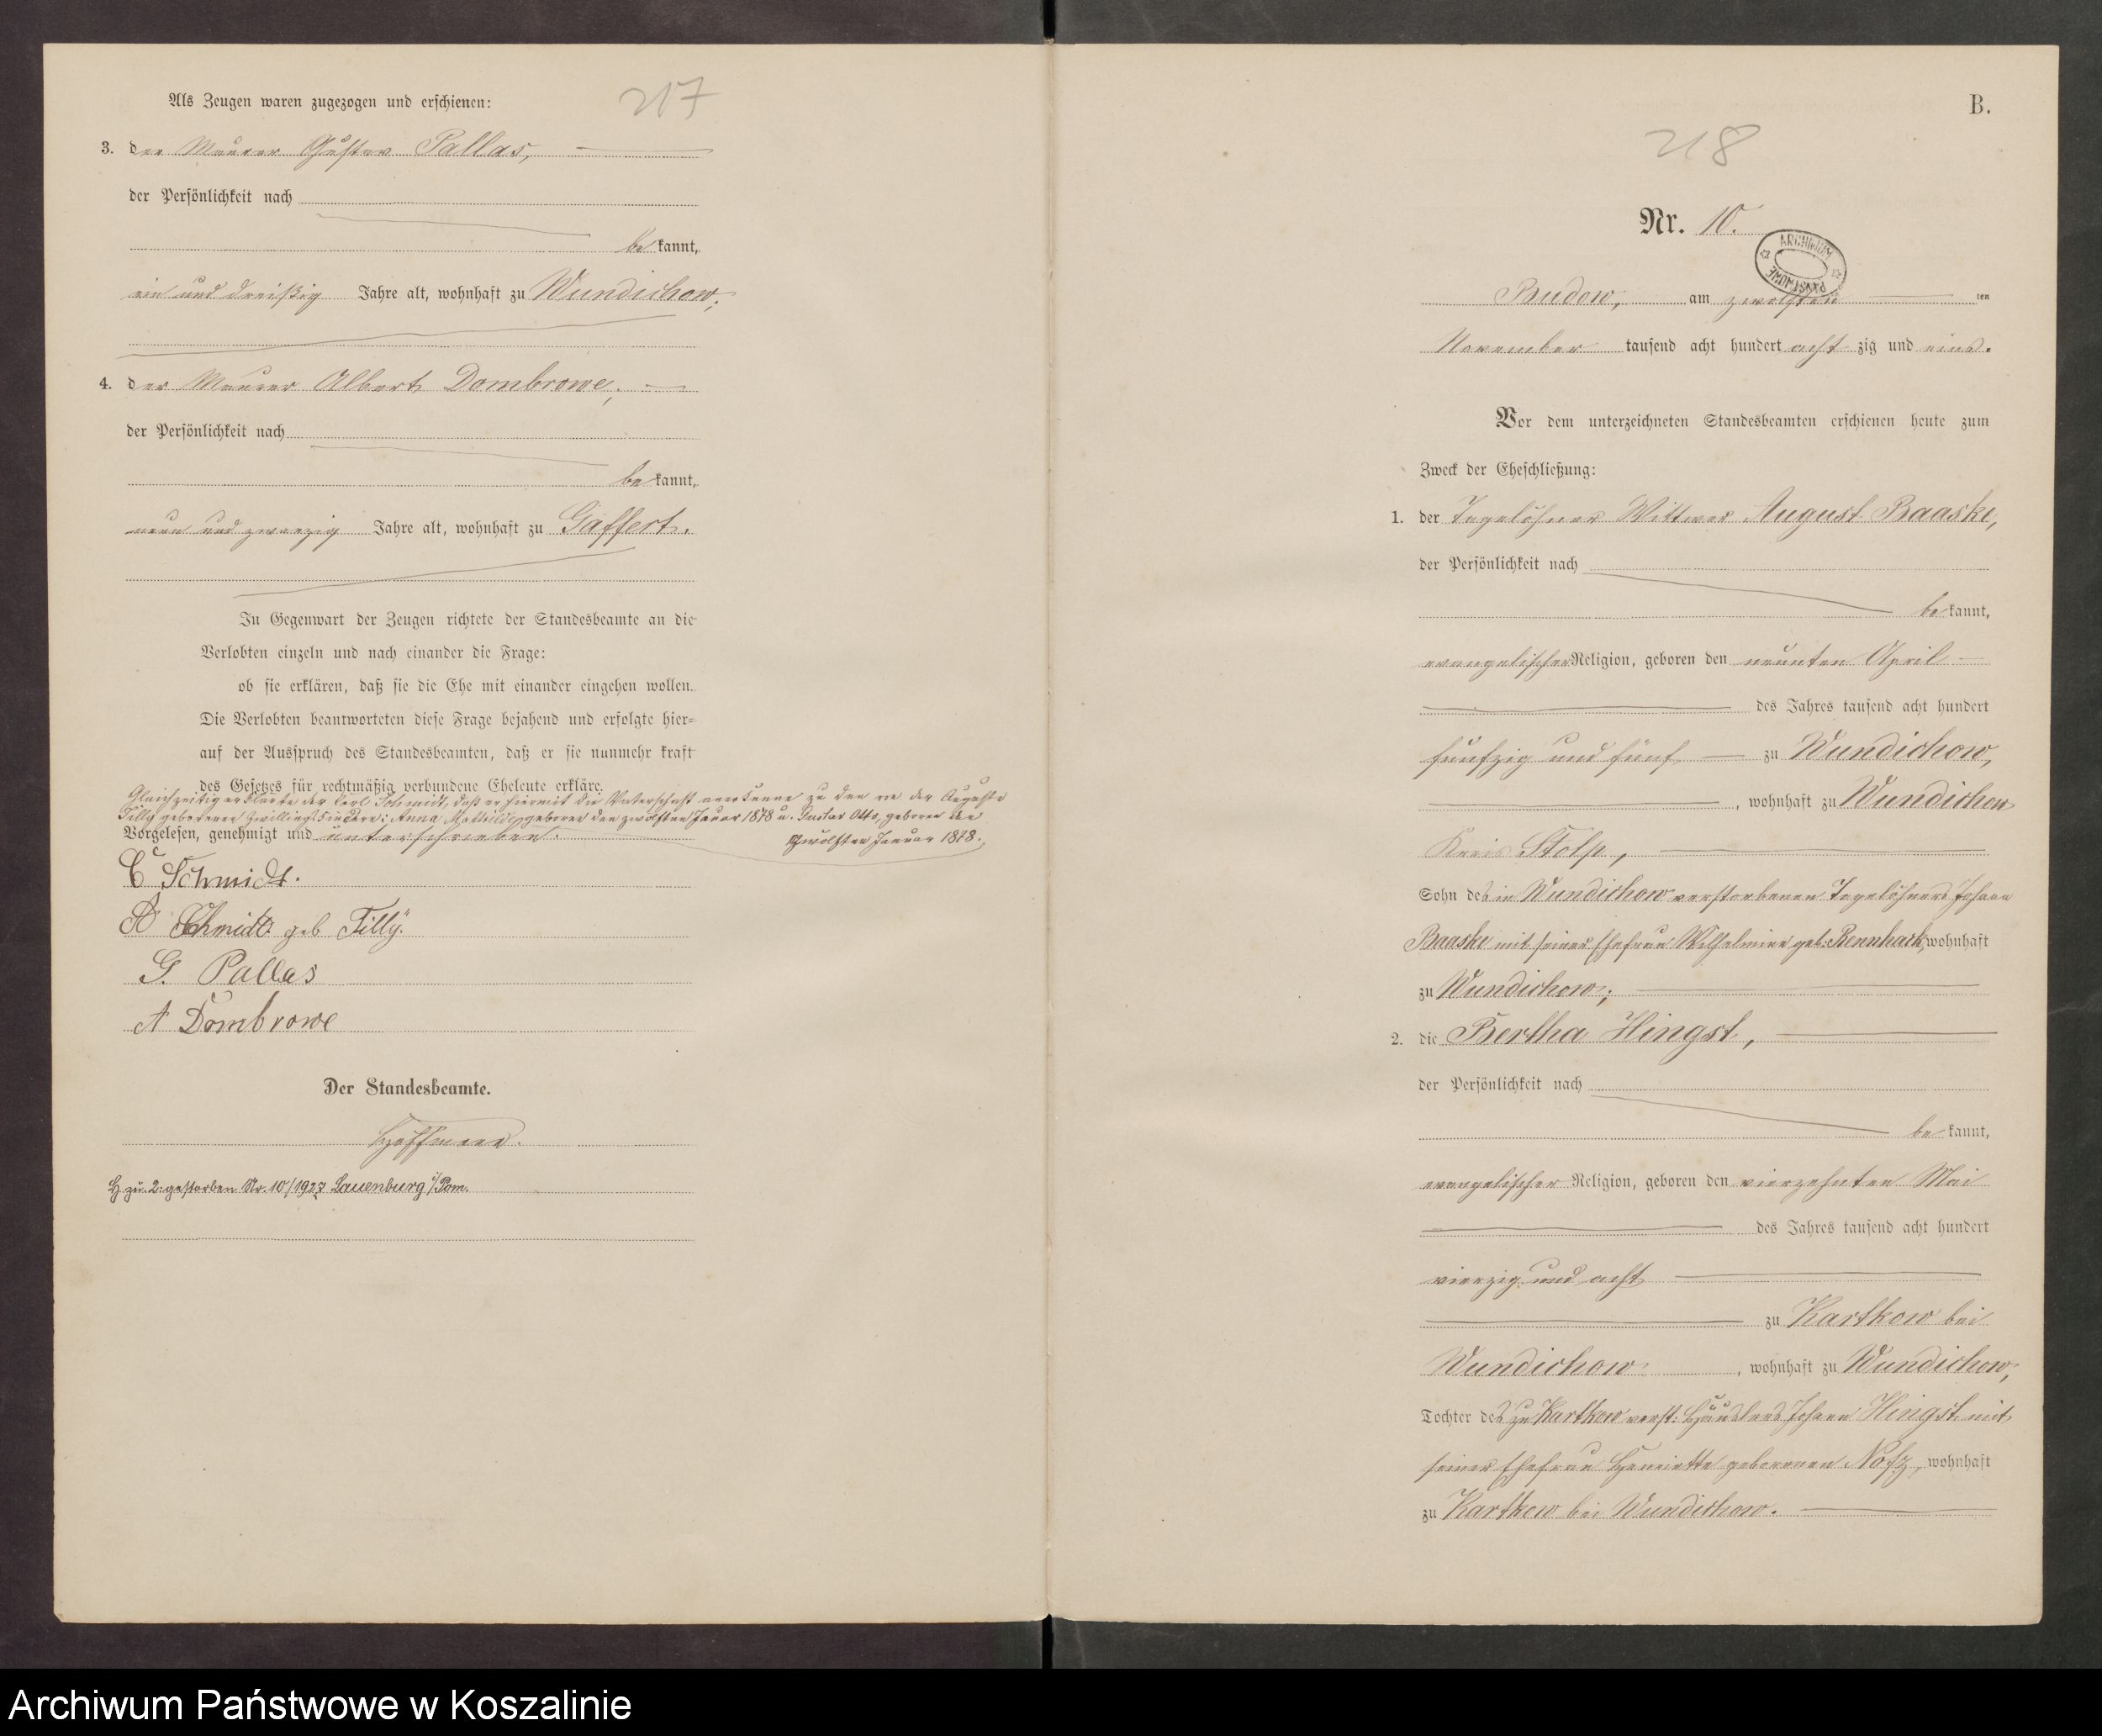 217
Als Zeugen waren zugezogen und erschienen:
3. der Maurer Gustav Pallas,
der Persönlichkeit nach
be kannt,
ein und dreißig Jahre alt, wohnhaft zu Wundichow,
4. der Maurer Albert Dombrowe,
der Persönlichkeit nach
be kannt,
neun und zwanzig Jahre alt, wohnhaft zu Gaffert.
In Gegenwart der Zeugen richtete der Standesbeamte an die
Verlobten einzeln und nach einander die Frage:
ob sie erklären, daß sie die Ehe mit einander eingehen wollen.
Die Verlobten beantworteten diese Frage bejahend und erfolgte hier=
auf der Ausspruch des Standesbeamten, daß er sie nunmehr kraft
des Gesetzes für rechtmäßig verbundene Eheleute erkläre.
Gleichzeitig erklärte der Carl Schmidt, daß er hiermit die Vaterschaft anerkenne zu den von der Auguste
Tilly geborenen Zwillingskindern: Anna Mathilde, geboren den zwölften Januar 1878 u. Gustav Otto, geboren den
zwölften Januar 1878.
Vorgelesen, genehmigt und unterschrieben.
C Schmidt.
A Schmidt geb Tilly
G. Pallas
A Dombrowe
Der Standesbeamte.
Hoffmann.
H zu. 2: gestorben Nr. 10/1927 Lauenburg i/Pom.
B.
218
Nr. 10.
ARCHIWUM PAŃSTWOWE
Budow, am zwölften ten
November tausend acht hundert acht zig und eins.
Vor dem unterzeichneten Standesbeamten erschienen heute zum
Zweck der Eheschließung:
1. der Tagelöhner Wittwer August Baaske,
der Persönlichkeit nach
be kannt,
evangelischer Religion, geboren den neunten April
des Jahres tausend acht hundert
funfzig und fünf zu Wundichow,
, wohnhaft zu Wundichow
Kreis Stolp,
Sohn des in Wundichow verstorbenen Tagelöhners Johann
Baaske mit seiner Ehefrau Wilhelmine geb: Rennhack, wohnhaft
zu Wundichow;
2. die Bertha Hingst,
der Persönlichkeit nach
be kannt,
evangelischer Religion, geboren den vierzehnten Mai
des Jahres tausend acht hundert
vierzig und acht
zu Kartkow bei
Wundichow, wohnhaft zu Wundichow,
Tochter des zu Kartkow verst: Häuslers Johann Hingst mit
seiner Ehefrau Henriette geborenen Nofz, wohnhaft
zu Kartkow bei Wundichow.
Archiwum Państwowe w Koszalinie